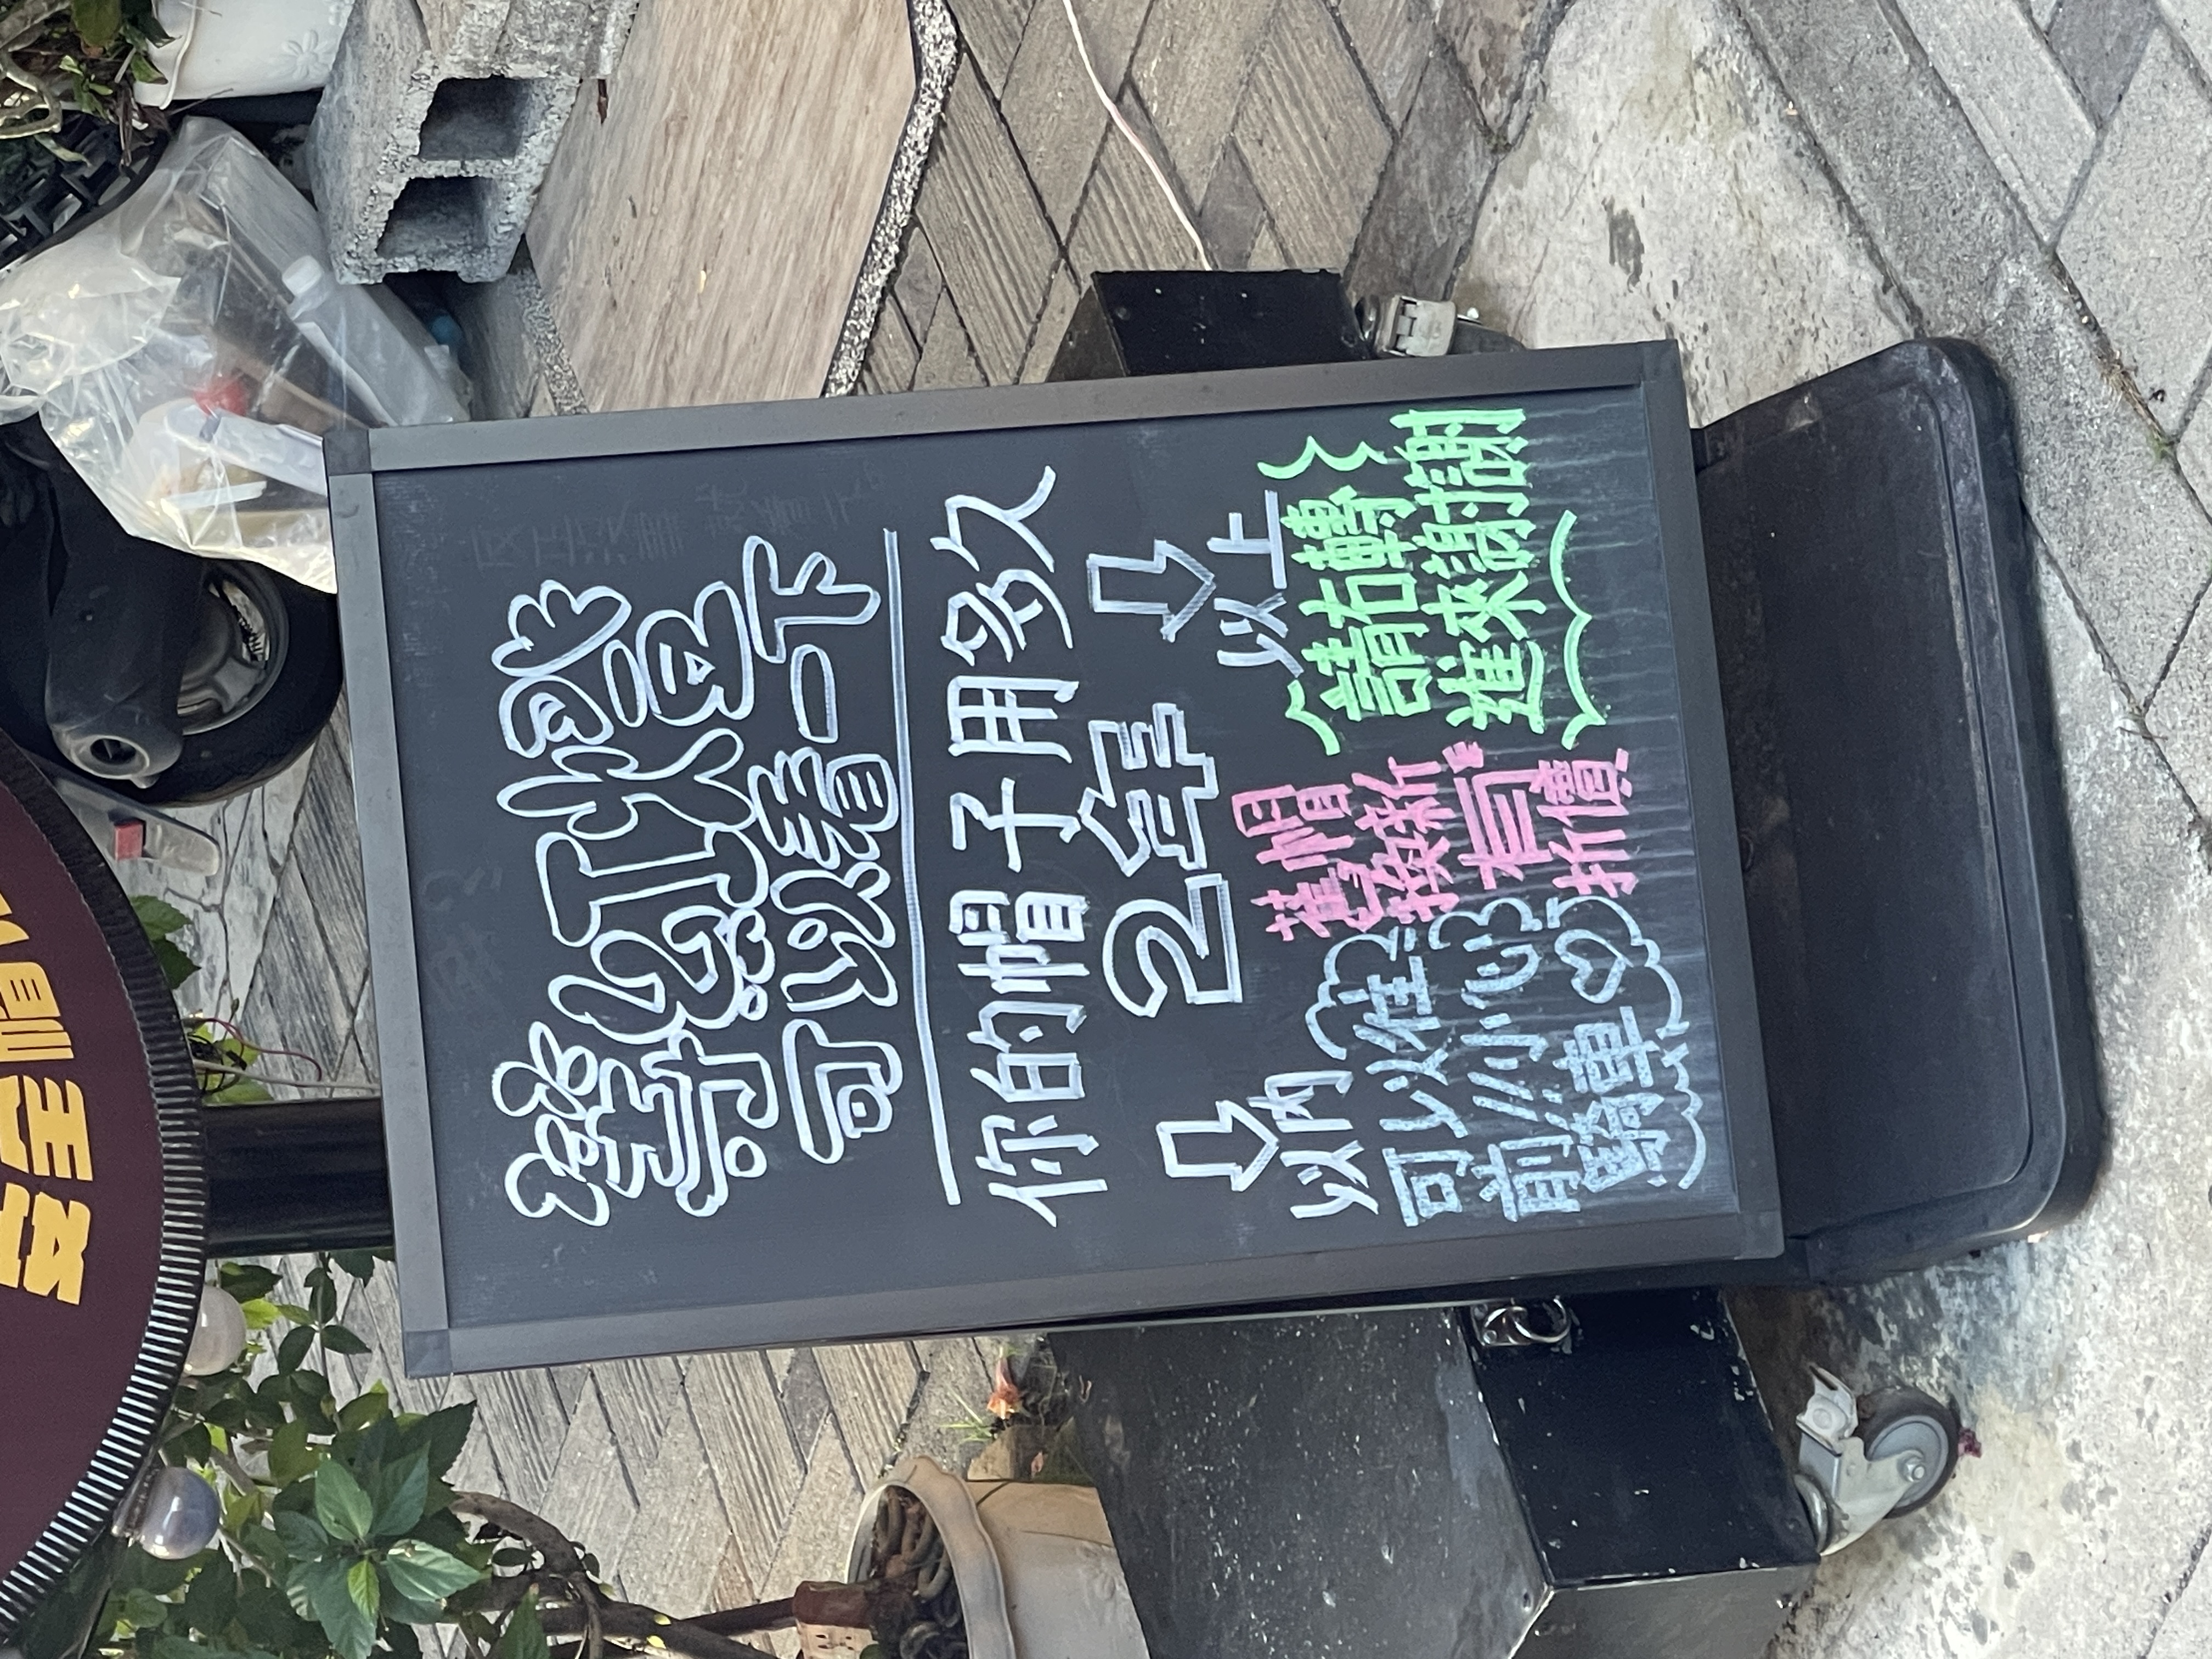 安全帽
等紅燈
可以看一下
你的帽子用多久
2年
以內
可以往
前//小心
騎車
舊帽
換新
有
折價
以上
請右轉
進來謝謝